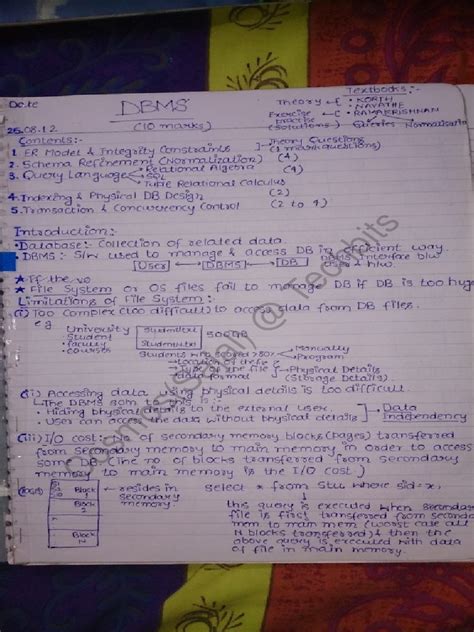 Date
DBMS
Textbooks:-
Theory → • KORTH
• NAVATHE
Exercise
(Solutions) • RAMAKRISHNAN
Queries Normalization
26.08.12
(10 marks)
Contents:-
1. ER Model & Integrity Constraints → Theory Questions
(1 mark questions)
2. Schema Refinement (Normalization) (4)
3. Query Language → Relational Algebra (4)
→ SQL
→ Tuple Relational Calculus
4. Indexing & Physical DB Design (2)
5. Transaction & Concurrency Control (2 to 4)
Introduction:-
• Database:- Collection of related data.
• DBMS:- S/w used to manage & access DB in efficient way.
User ↔ DBMS ↔ DB DBMS interface b/w
& h/w.
★ If the
★ File System or OS files fail to manage DB if DB is too huge
Limitations of File System:-
(i) Too complex (too difficult) to access data from DB files.
e.g. University
Student
faculty
courses
50GB
Students with score >50%
→ Manually
→ Program
→ Location of the file
→ Type of the file
→ data format
Physical Details
(Storage Details)
(ii) Accessing data using physical details is too difficult.
The DBMS aim to this is:-
• Hiding physical details to the external user.
• User can access the data without physical details
→ Data
Independency
(iii) I/O cost:- # of secondary memory blocks (pages) transferred
from secondary memory to main memory in order to access
some DB. (The no of blocks transferred from secondary
memory to main memory is the I/O cost.)
Block
← resides in
secondary
memory
select * from Stu where sid=x;
Block
Block
N
this query is executed when secondary
file is first transferred from secondary
mem to main mem (worst case all
N blocks transferred) & then the
above query is executed with data
of file in main memory.